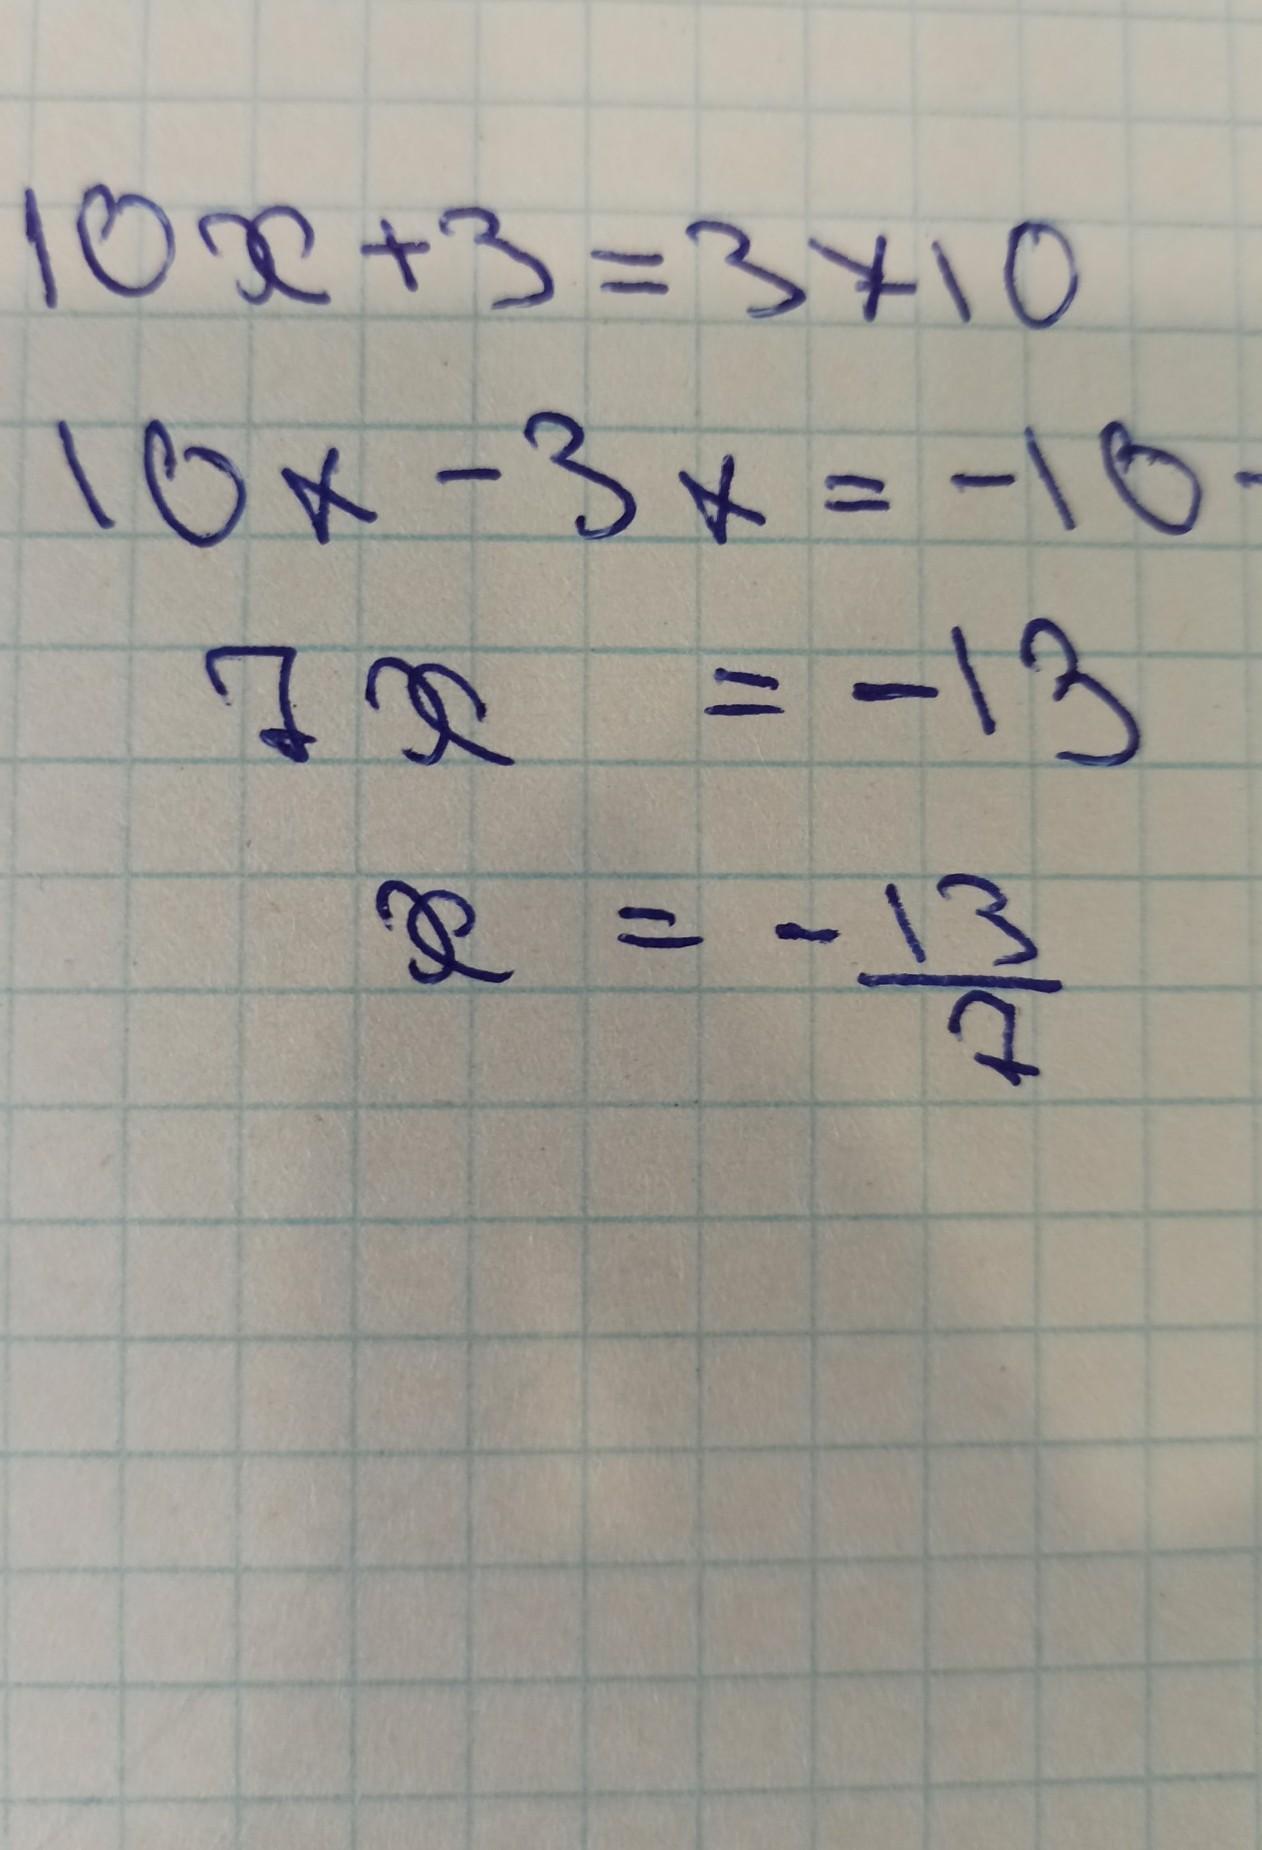 10x+3=3x10
10x-3x=-10-
7x=-13
x=-13/7